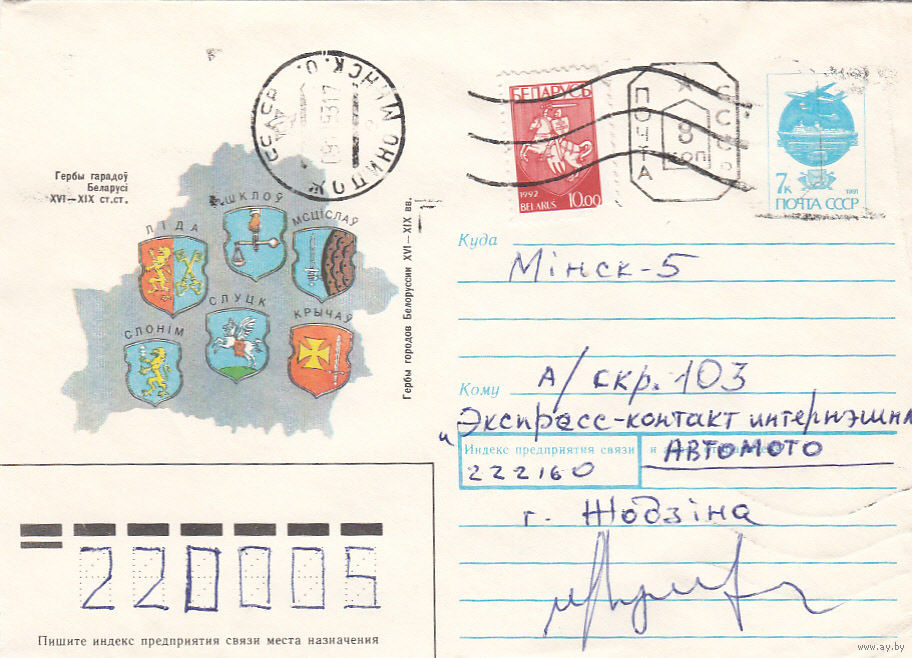 Гербы гарадоў
Беларусі
XVI—XIX ст.ст.
ЛІДА
ШКЛОЎ
МСЦІСЛАЎ
СЛОНІМ
СЛУЦК
КРЫЧАЎ
Гербы городов Белоруссии XVI—XIX вв.
БЕЛАРУСЬ
1992
BELARUS 10.00
ПОЧТА
СССР
8
КОП
7к
1991
ПОЧТА СССР
Куда
Мінск-5
Кому
А/скр. 103
"Экспресс-контакт интернэшнл
АВТОМОТО
Индекс предприятия связи и
222160
г. Жодзіна
220005
Пишите индекс предприятия связи места назначения
www.ay.by